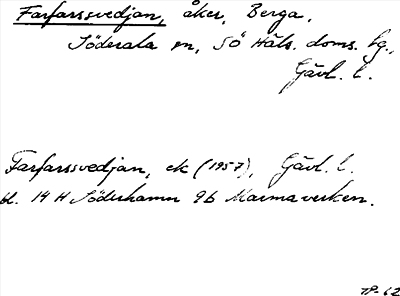 Farfarssvedjan, åker, Berga,
Söderala sn, SÖ Häls. doms. hg.,
Gävl. l.
Farfarssvedjan, ek (1957), Gävl. l.
bl. 14 H Söderhamn 9b Marmaverken.
TP-62